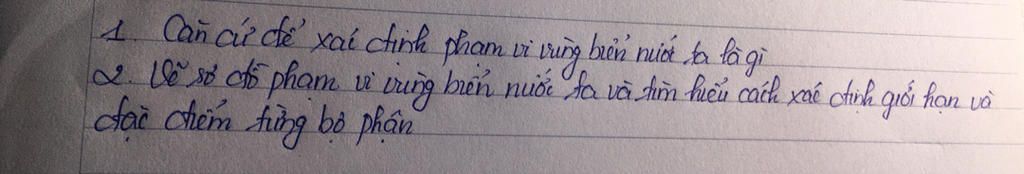 1. Căn cứ để xác định phạm vi vùng biển nước ta là gì
2. Vẽ sơ đồ phạm vi vùng biển nước ta và tìm hiểu cách xác định giới hạn và
đặc điểm từng bộ phận